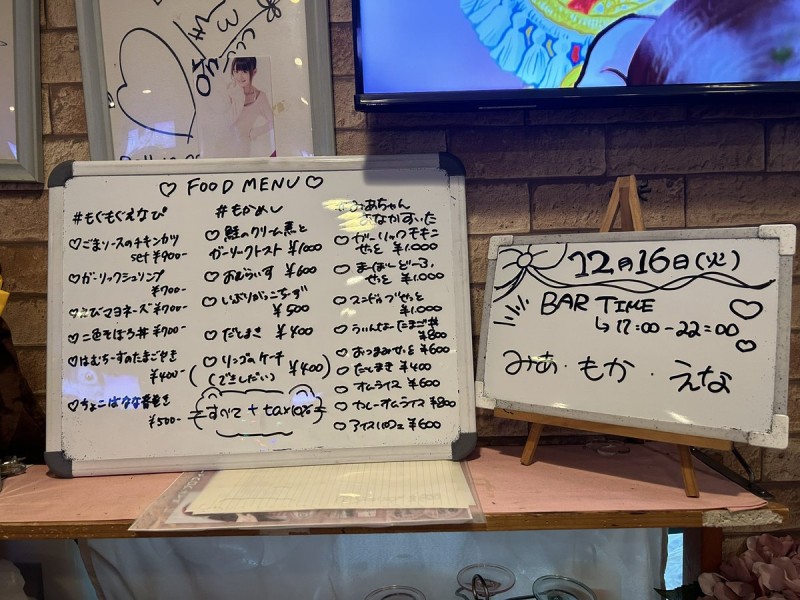 ♡ FOOD MENU ♡
#もぐもぐえなぴ
♡ごまソースのチキンカツ
set ¥900-
♡ガーリックシュリンプ
¥700-
♡えびマヨネーズ ¥700-
♡二色そぼろ丼 ¥700-
♡はむちーずのたまごやき
¥400-
♡ちょこばなな春巻き
¥500-
#もかめし
♡鮭のクリーム煮と
ガーリックトースト ¥1000
♡おむらいす ¥600
♡いぶりがっこちーず
¥500
♡だしまき ¥400
♡リンゴのケーキ
(できしだい)
(¥400)
すべて + tax10%
みあちゃん
おなかすいた
♡ガーリックモモニ
せっと ¥1,000
♡まーぼーどーふ
せっと ¥1,000
♡スンドゥブせっと
¥1,000
♡ういんなーたまご丼
¥800
♡おつまみせっと ¥600
♡だしまき ¥400
♡オムライス ¥600
♡カレーオムライス ¥800
♡アイスパフェ ¥600
12月16日(火)
BAR TIME
↳17:00-22:00
みあ・もか・えな